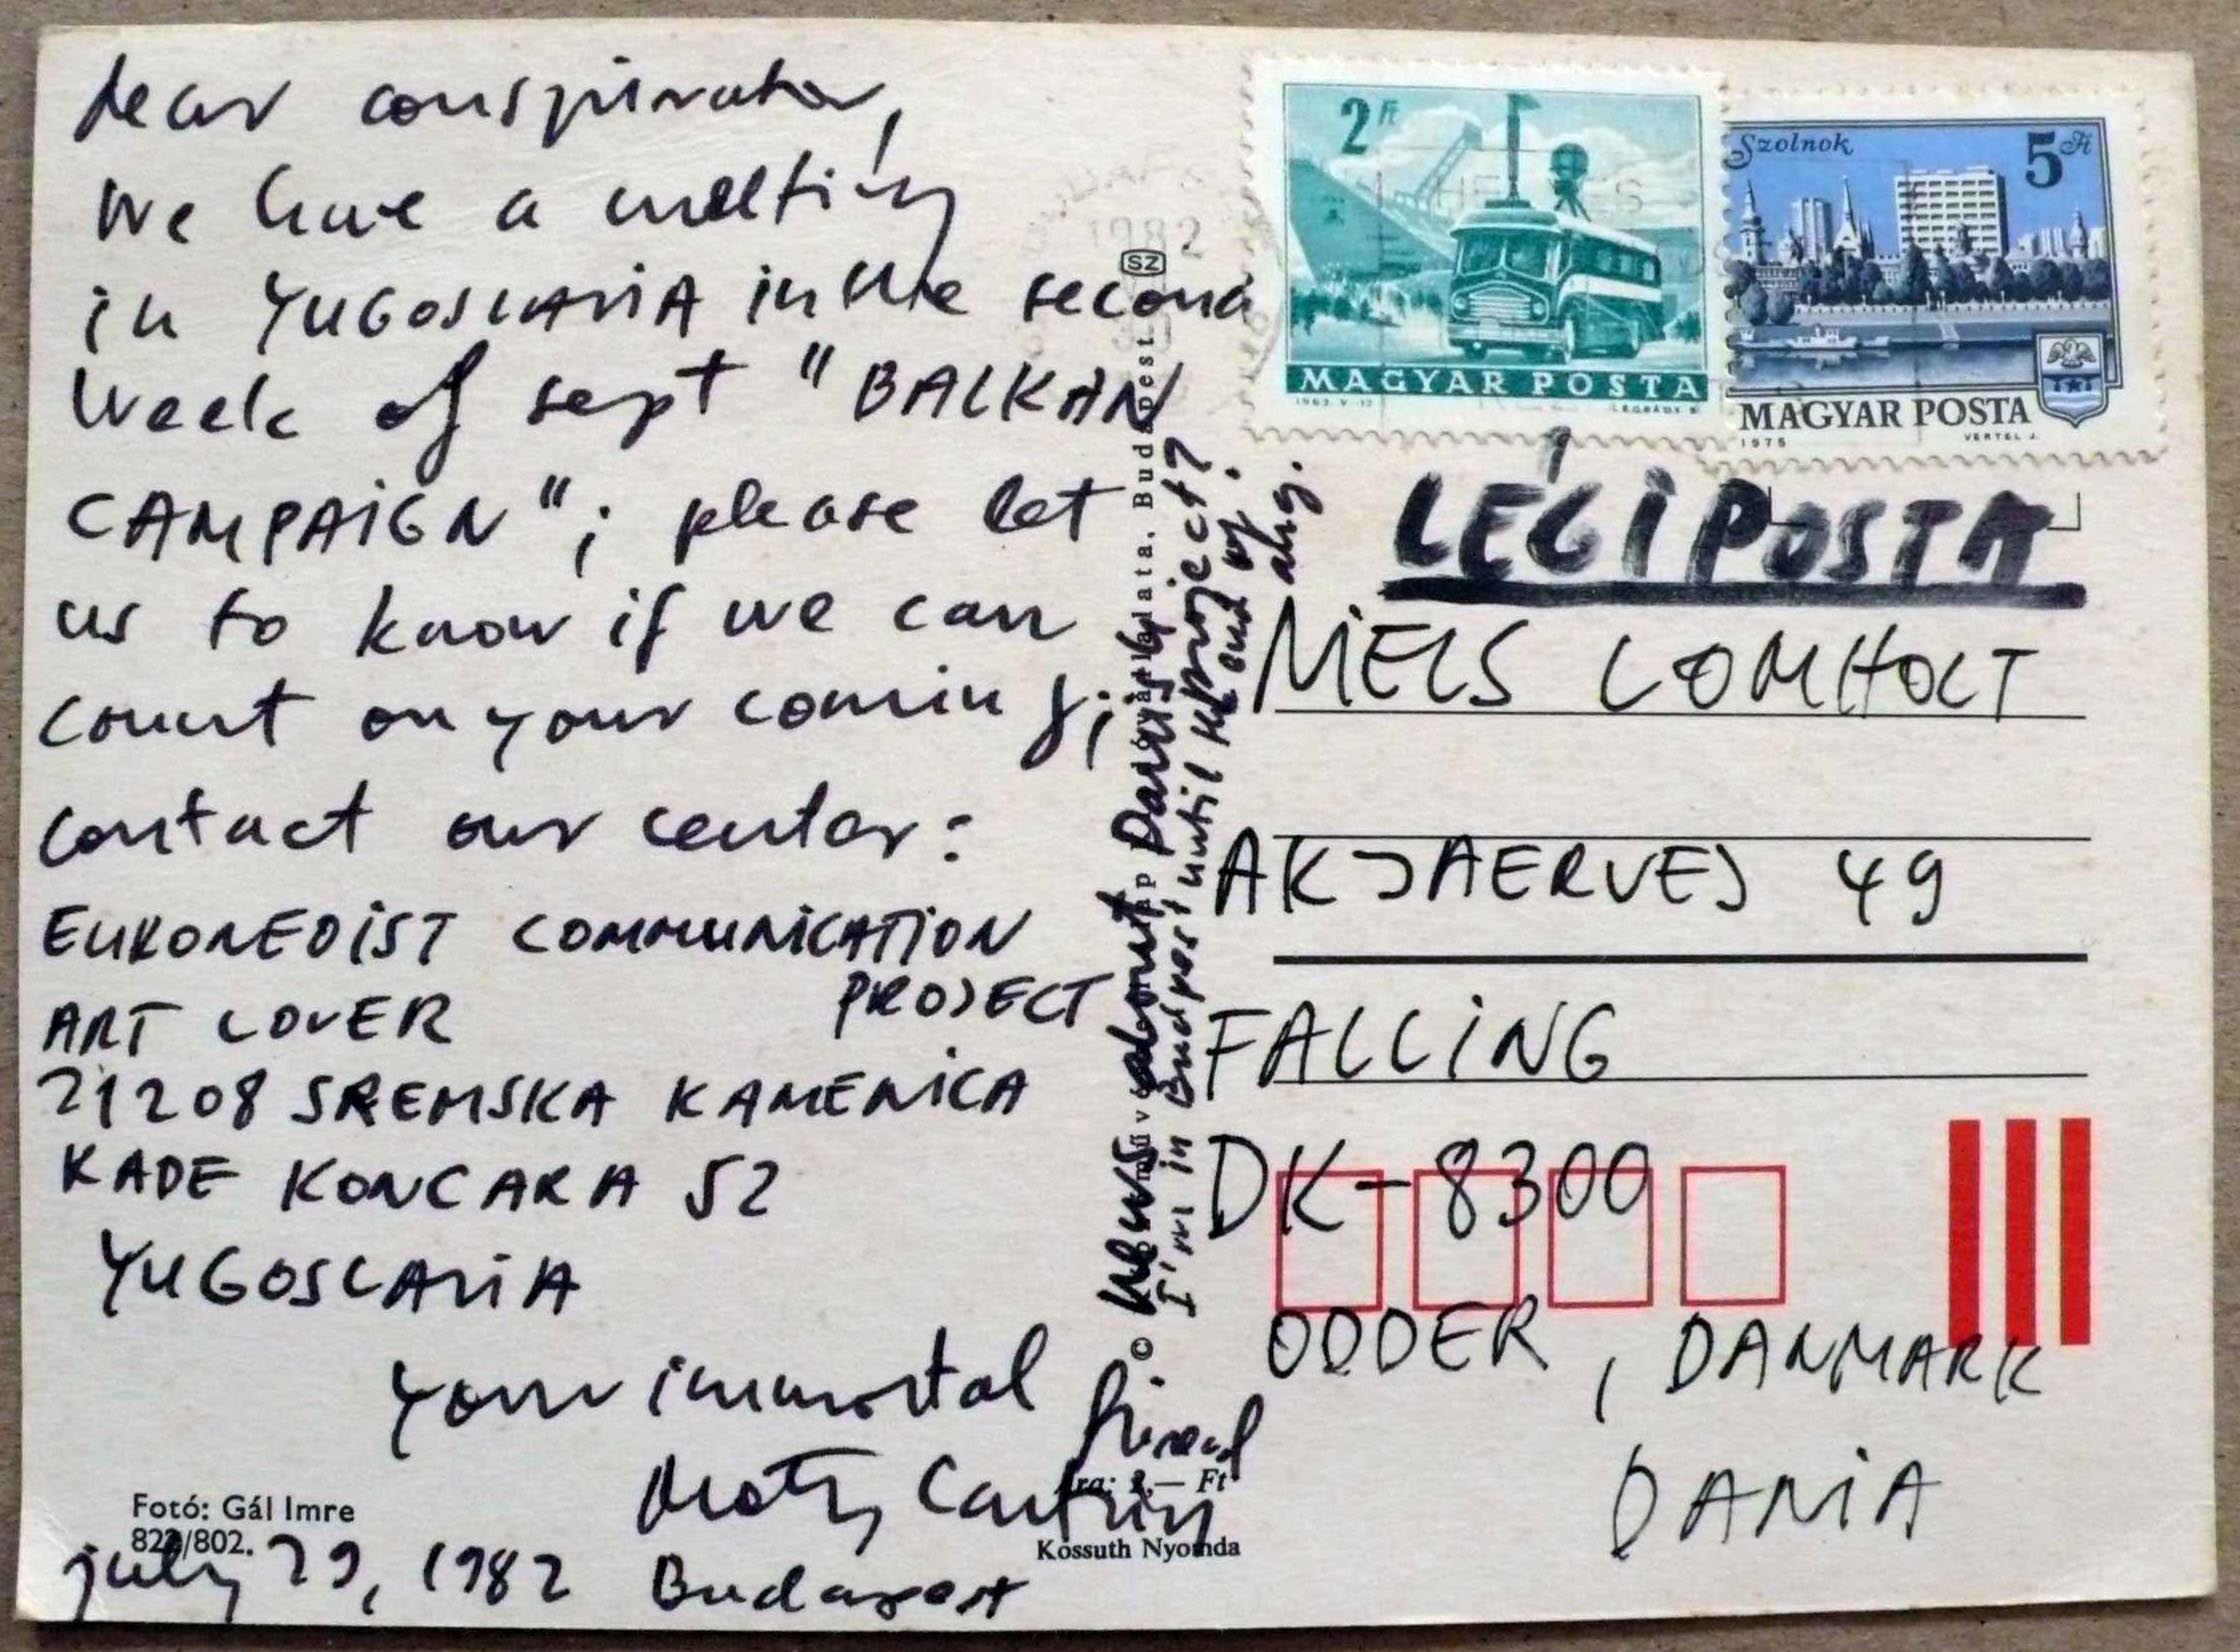 dear conspirator,
We have a melting
in YUGOSLAViA in the second
week of sept "BALKAN
CAMPAiGN"; please let
us to know if we can
count on your coming;
contact our center:
EUKONEDIST COMMUNiCATiON
PROJECT
ART LOVER
21208 SREMSKA KAMENiCA
RADE KONCARA 52
YUGOSLAViA
your immortal
friend
july 29, 1982 Budapest
Fotó: Gál Imre
82 /802.
Ára: 2,— Ft
Kossuth Nyomda
news about Danu's project?
I'm in Budpest until the end of
aug.
Budapest.
SZ
1982
2 Ft
MAGYAR POSTA
1963. V. 12
LÉGRÁDI S.
Szolnok
5 Ft
MAGYAR POSTA
1975
VERTEL J.
LÉGiPOSTA
NiELS LOMHOLT
AKJAERVEJ 49
FALLiNG
DK-8300
ODDER, DANMARK
DANiA